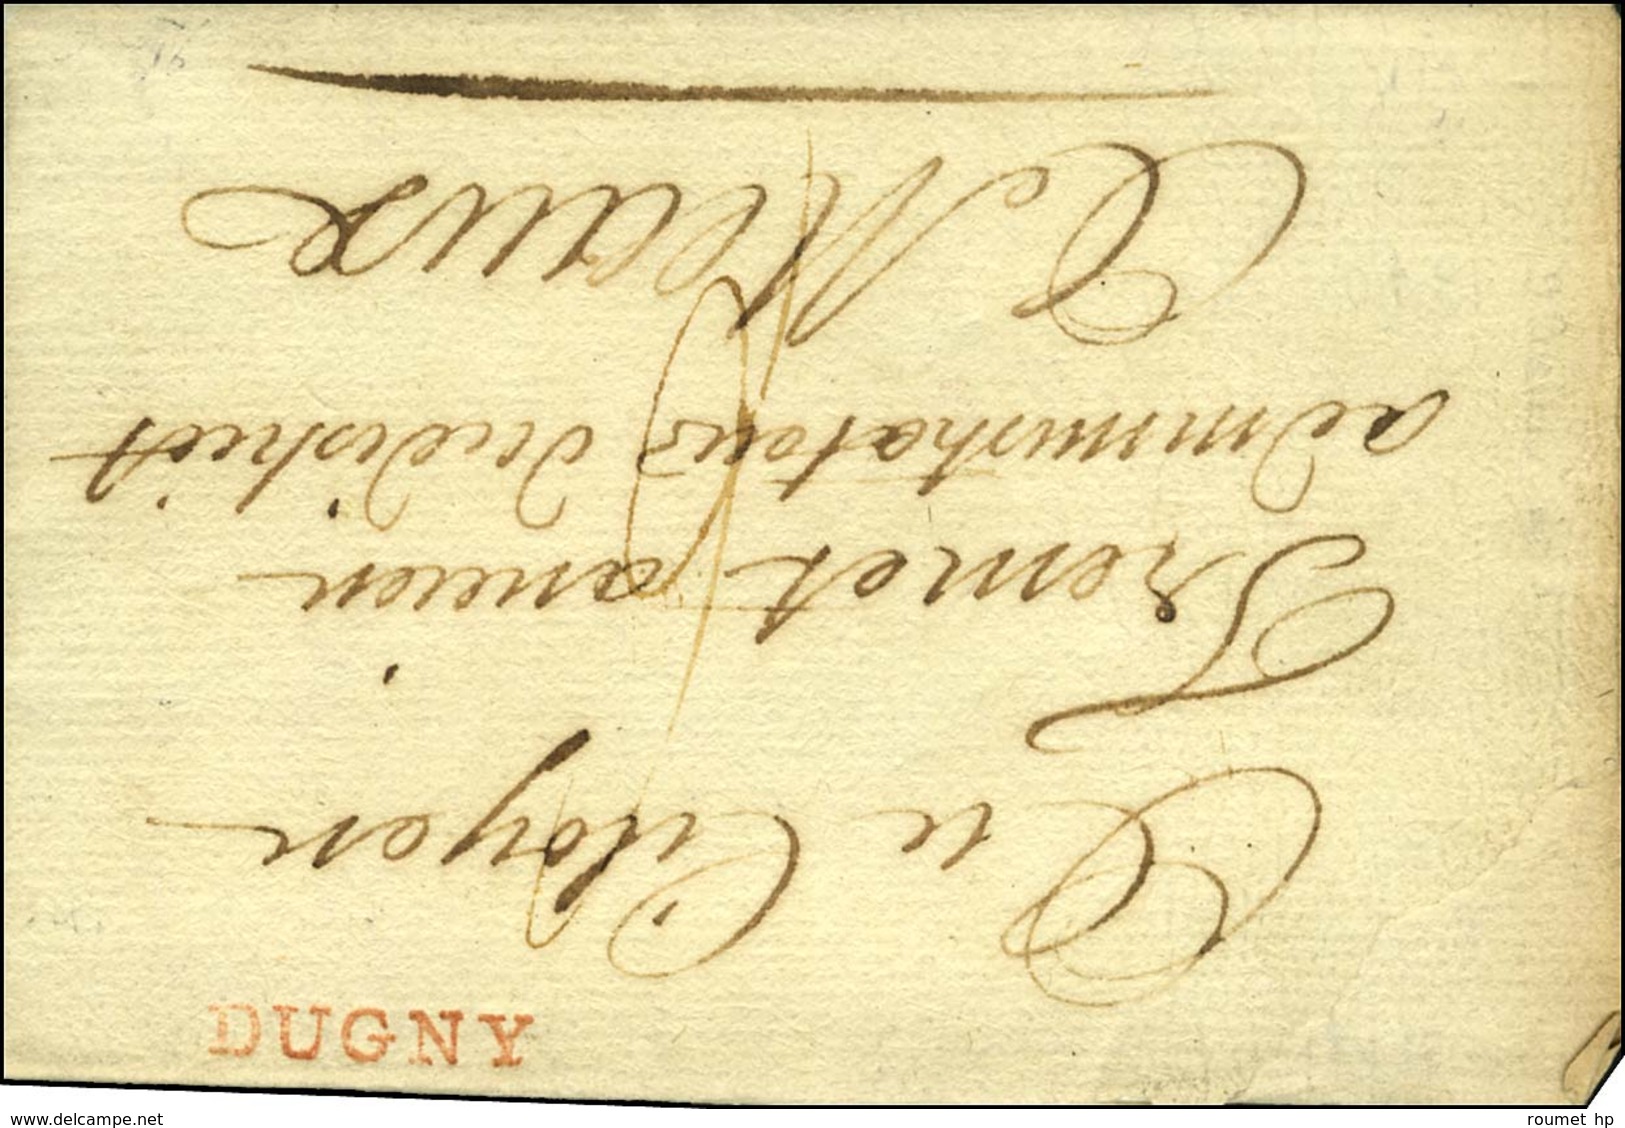 Au Citoyen
Tremet ancien
administrateur du district
A Meaux
DUGNY
www.delcampe.net
roumet hp